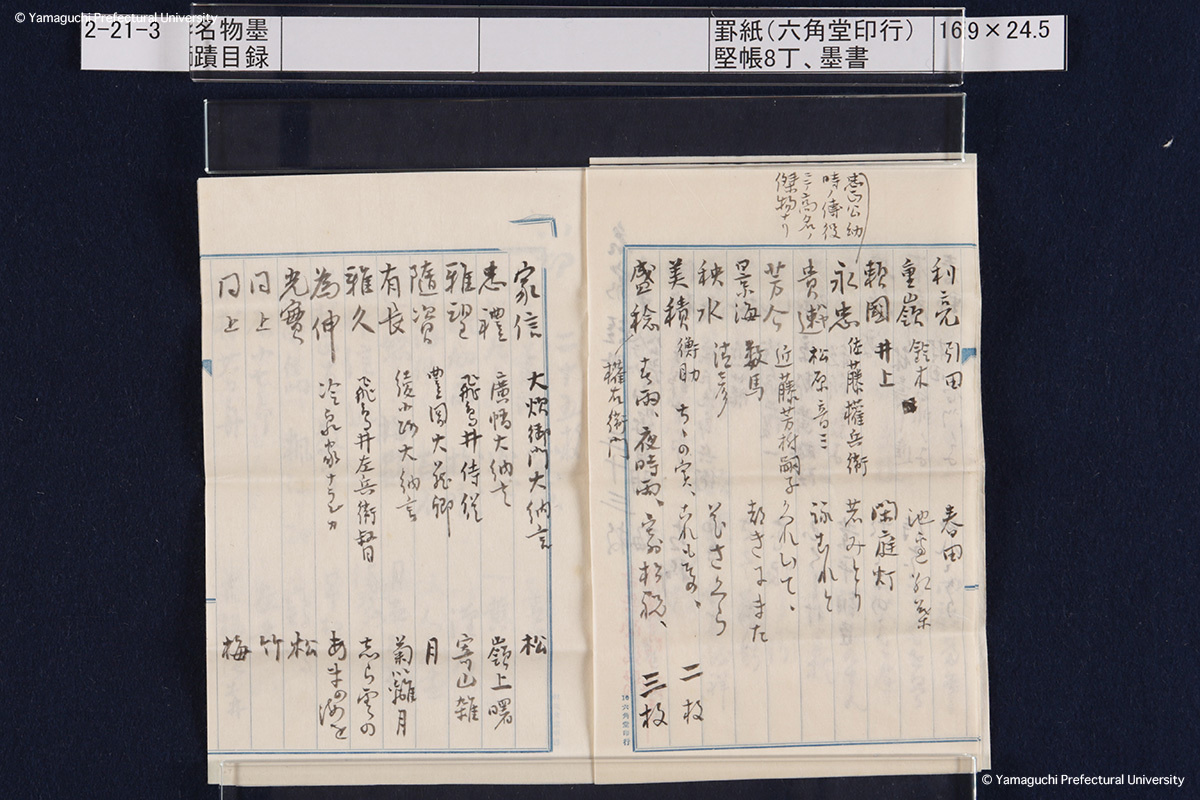 © Yamaguchi Prefectural University
2-21-3
名物墨
蹟目録
罫紙(六角堂印行)
堅帳8丁、墨書
169×24.5
忠正公幼
時ノ傅役
ニテ高名ノ
傑物ナリ
利亮 引田 春田
重嶺 鈴木 池辺
頼国 井上 閑庭灯
永忠 佐藤権兵衛 若みとり
貴 松原音三
芳介 近藤芳樹嗣子
景海 数馬 またきにまた
秧水 清彦
美積 衛助 二枚
盛稔 権右衛門 春雨、夜時雨、寄松祝、 三枚
十六 六角堂印行
家信 大炊御門大納言 松
忠禮 廣幡大納言 嶺上曙
雅望 飛鳥井侍従 寄山雑
随資 豊岡大蔵卿 月
有長 綾小路大納言 菊籬月
雅久 飛鳥井左兵衛督 志ら雲の
為伸 冷泉家ナランカ あまの河と
光實 松
同上 竹
同上 梅
© Yamaguchi Prefectural University